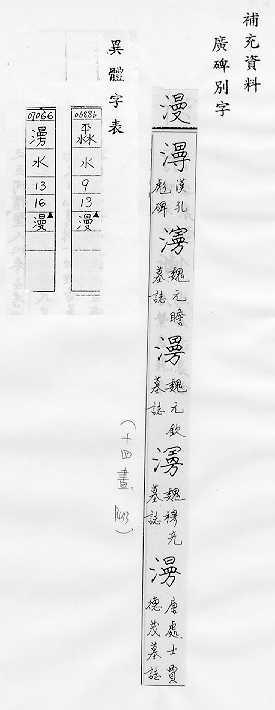 補充資料
廣碑別字
漫
漢孔彪碑
魏元瞻墓誌
魏元欽墓誌
魏穆亮墓誌
唐處士賈德茂墓誌
(十四畫
異體字表
06886
水
9
13
漫
07066
澷
水
13
16
漫